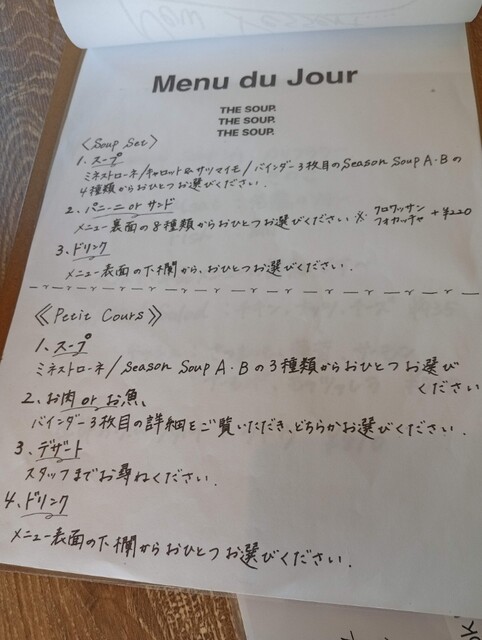 Menu du Jour
THE SOUP.
THE SOUP.
THE SOUP.
〈Soup Set〉
1. スープ
ミネストローネ/キャロット&サツマイモ/バインダー3枚目のSeason Soup A・Bの
4種類からおひとつお選びください.
2. パニーニ or サンド
メニュー裏面の8種類からおひとつお選びください ※ クロワッサン
フォカッチャ +¥220
3. ドリンク
メニュー表面の下欄から、おひとつお選びください.
《Petit Cours》
1. スープ
ミネストローネ/Season Soup A・Bの3種類からおひとつお選び
ください
2. お肉 or お魚、
バインダー3枚目の詳細をご覧いただき、どちらかお選びください.
3、デザート
スタッフまでお尋ねください.
4、ドリンク
メニュー表面の下欄からおひとつお選びください.